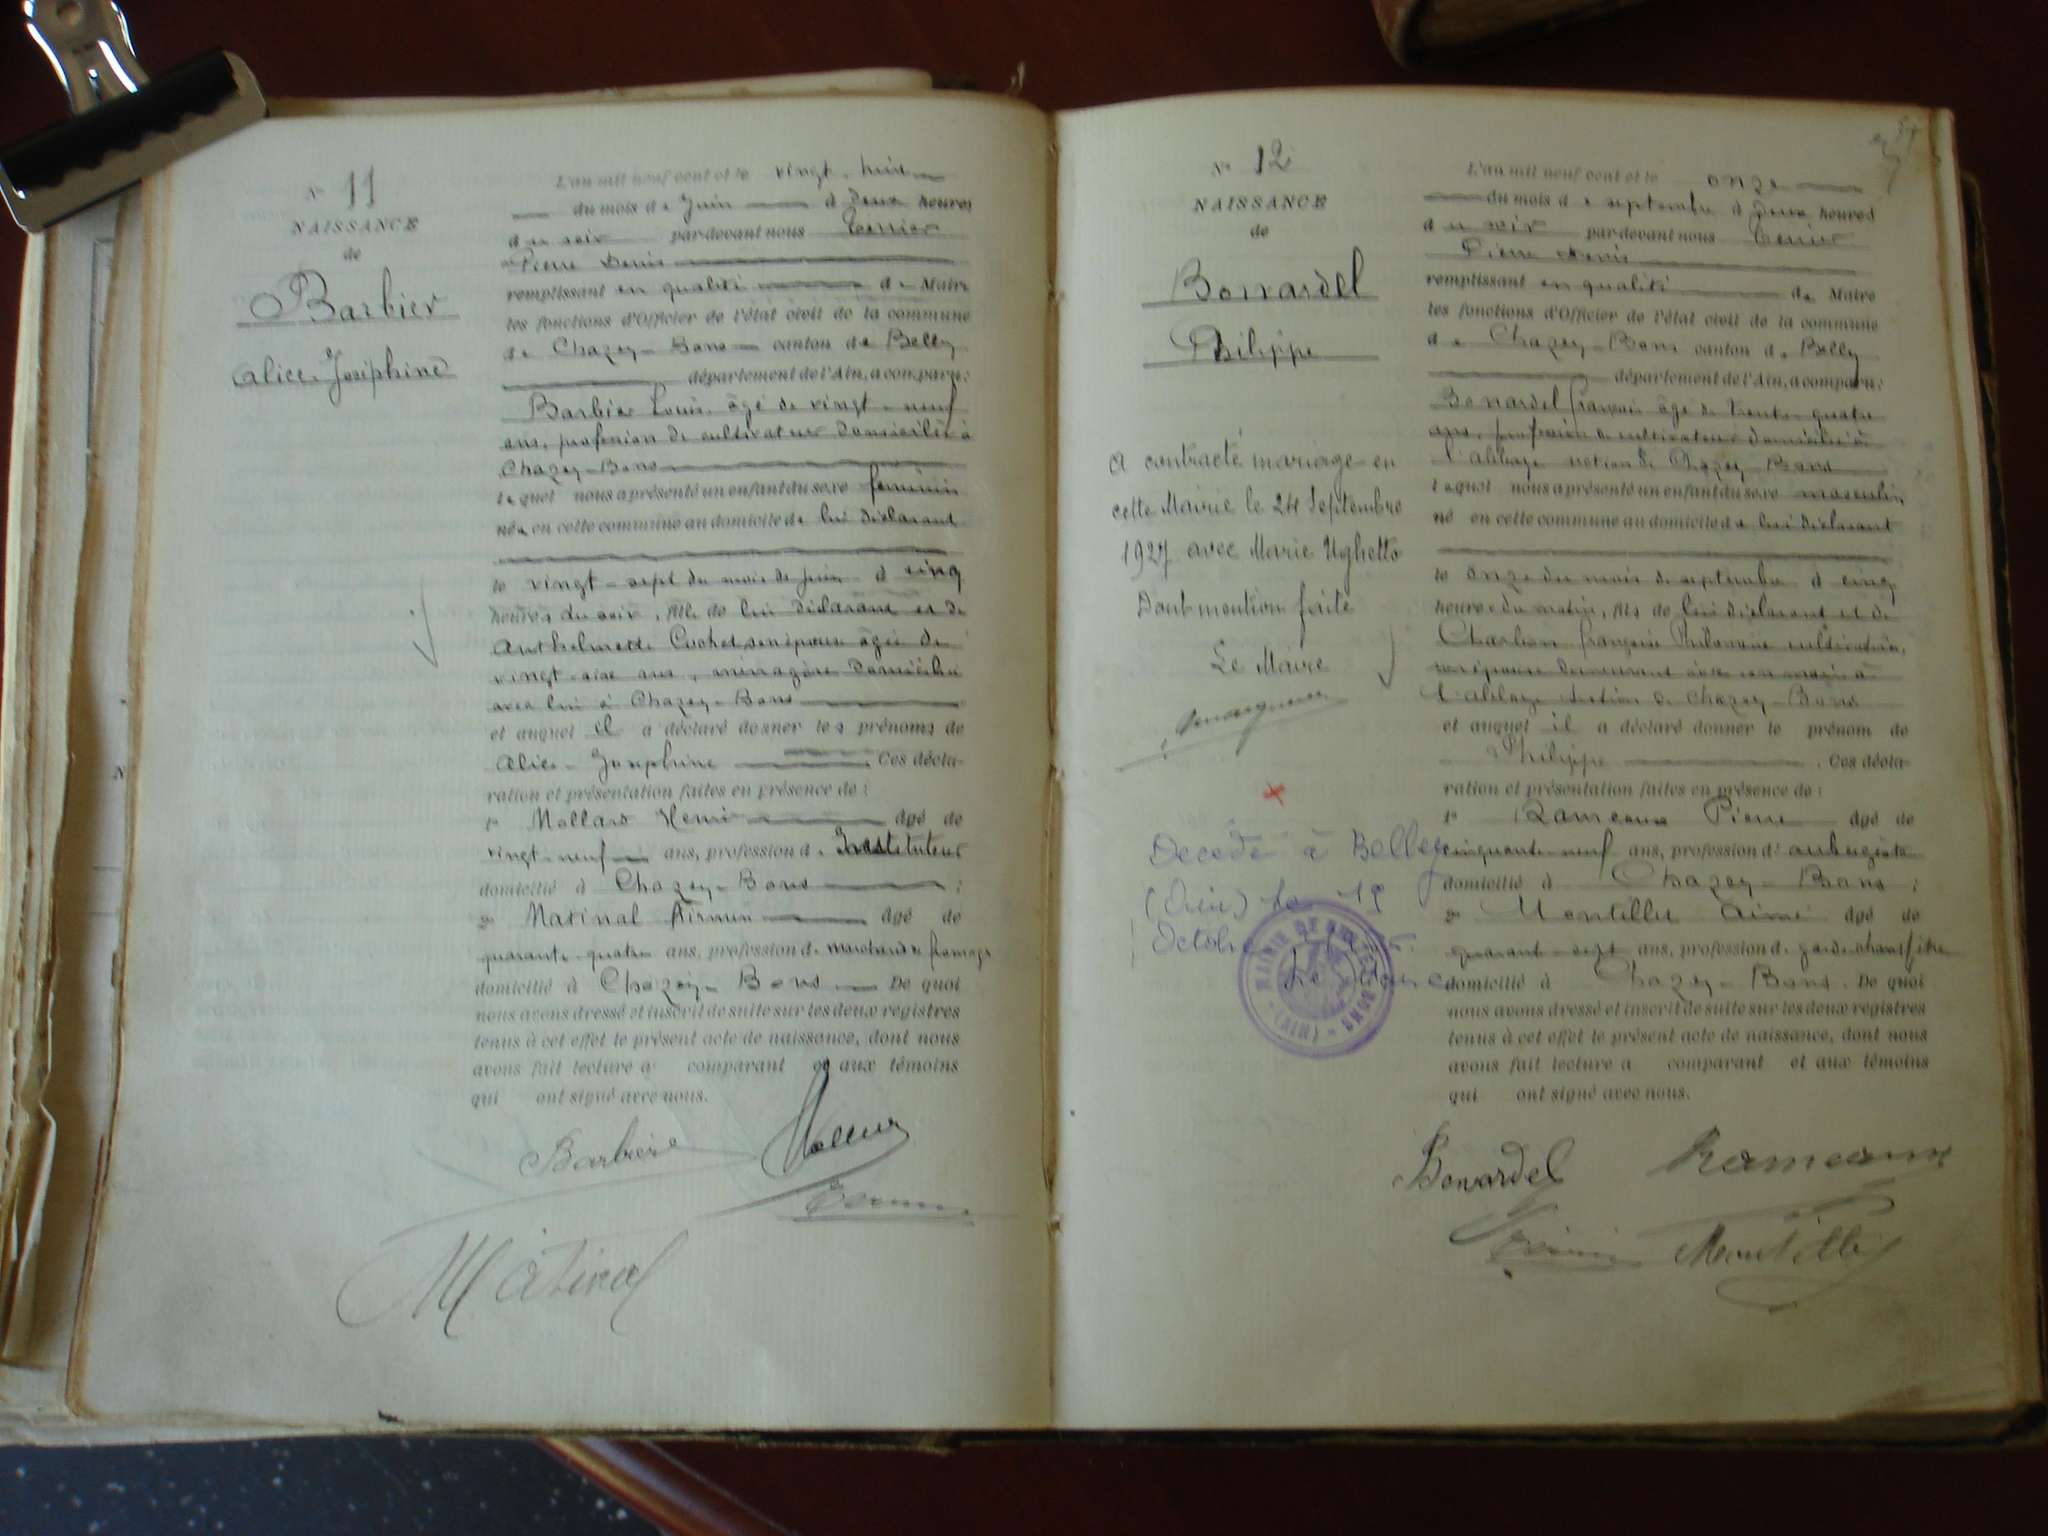 N° 11
NAISSANCE
de
Barbier
Alice Joséphine
L'an mil neuf cent et le vingt-huit
du mois de Juin à Deux heures
du soir par devant nous Terrier
Pierre Denis
remplissant en qualité de Maire
les fonctions d'Officier de l'état civil de la commune
de Chazey-Bons canton de Belley
département de l'Ain, a comparu:
Barbier Louis, âgé de vingt-neuf
ans, profession de cultivateur domicilié à
Chazey-Bons
lequel nous a présenté un enfant du sexe féminin
née en cette commune au domicile de lui déclarant
le vingt-sept du mois de Juin à cinq
heures du soir, fille de lui déclarant et de
Anthelmette Cochet son épouse âgée de
ans, ménagère domiciliée
avec lui à Chazey-Bons
et auquel il a déclaré donner les prénoms de
Alice-Joséphine Ces décla-
ration et présentation faites en présence de:
1° Mollard Henri âgé de
vingt-neuf ans, profession d'Instituteur
domicilié à Chazey-Bons;
2° Matinal Firmin âgé de
quarante-quatre ans, profession de marchand de fromage
domicilié à Chazey-Bons De quoi
nous avons dressé et inscrit de suite sur les deux registres
tenus à cet effet le présent acte de naissance, dont nous
avons fait lecture a comparant et aux témoins
qui ont signé avec nous.
Barbier
Matinal
N° 12
NAISSANCE
de
Bonardel
Philippe
A contracté mariage en
cette Mairie le 24 Septembre
1927 avec Marie Ughetto
Dont mention faite
Le Maire
Décédé à Belley
(Ain) le 19
Octobre
Le Maire
MAIRIE DE CHAZEY-BONS (AIN)
L'an mil neuf cent et le onze
du mois de septembre à deux heures
du soir par devant nous Terrier
Pierre Denis
remplissant en qualité de Maire
les fonctions d'Officier de l'état civil de la commune
de Chazey-Bons canton de Belley
département de l'Ain, a comparu:
Bonardel François âgé de trente-quatre
ans, profession de cultivateur domicilié à
l'abbaye section de Chazey-Bons
lequel nous a présenté un enfant du sexe masculin
né en cette commune au domicile de lui déclarant
le onze du mois de septembre à cinq
heures du matin, fils de lui déclarant et de
Charlion Françoise Philomène cultivatrice,
son épouse demeurant avec son mari à
l'abbaye section de Chazey-Bons
et auquel il a déclaré donner le prénom de
Philippe. Ces décla-
ration et présentation faites en présence de:
1° Rameaux Pierre âgé de
cinquante-neuf ans, profession d'aubergiste
domicilié à Chazey-Bons;
2° Montillet Aimé âgé de
quarant-sept ans, profession de garde champêtre
domicilié à Chazey-Bons. De quoi
nous avons dressé et inscrit de suite sur les deux registres
tenus à cet effet le présent acte de naissance, dont nous
avons fait lecture a comparant et aux témoins
qui ont signé avec nous.
Bonardel Rameaux
Montillet